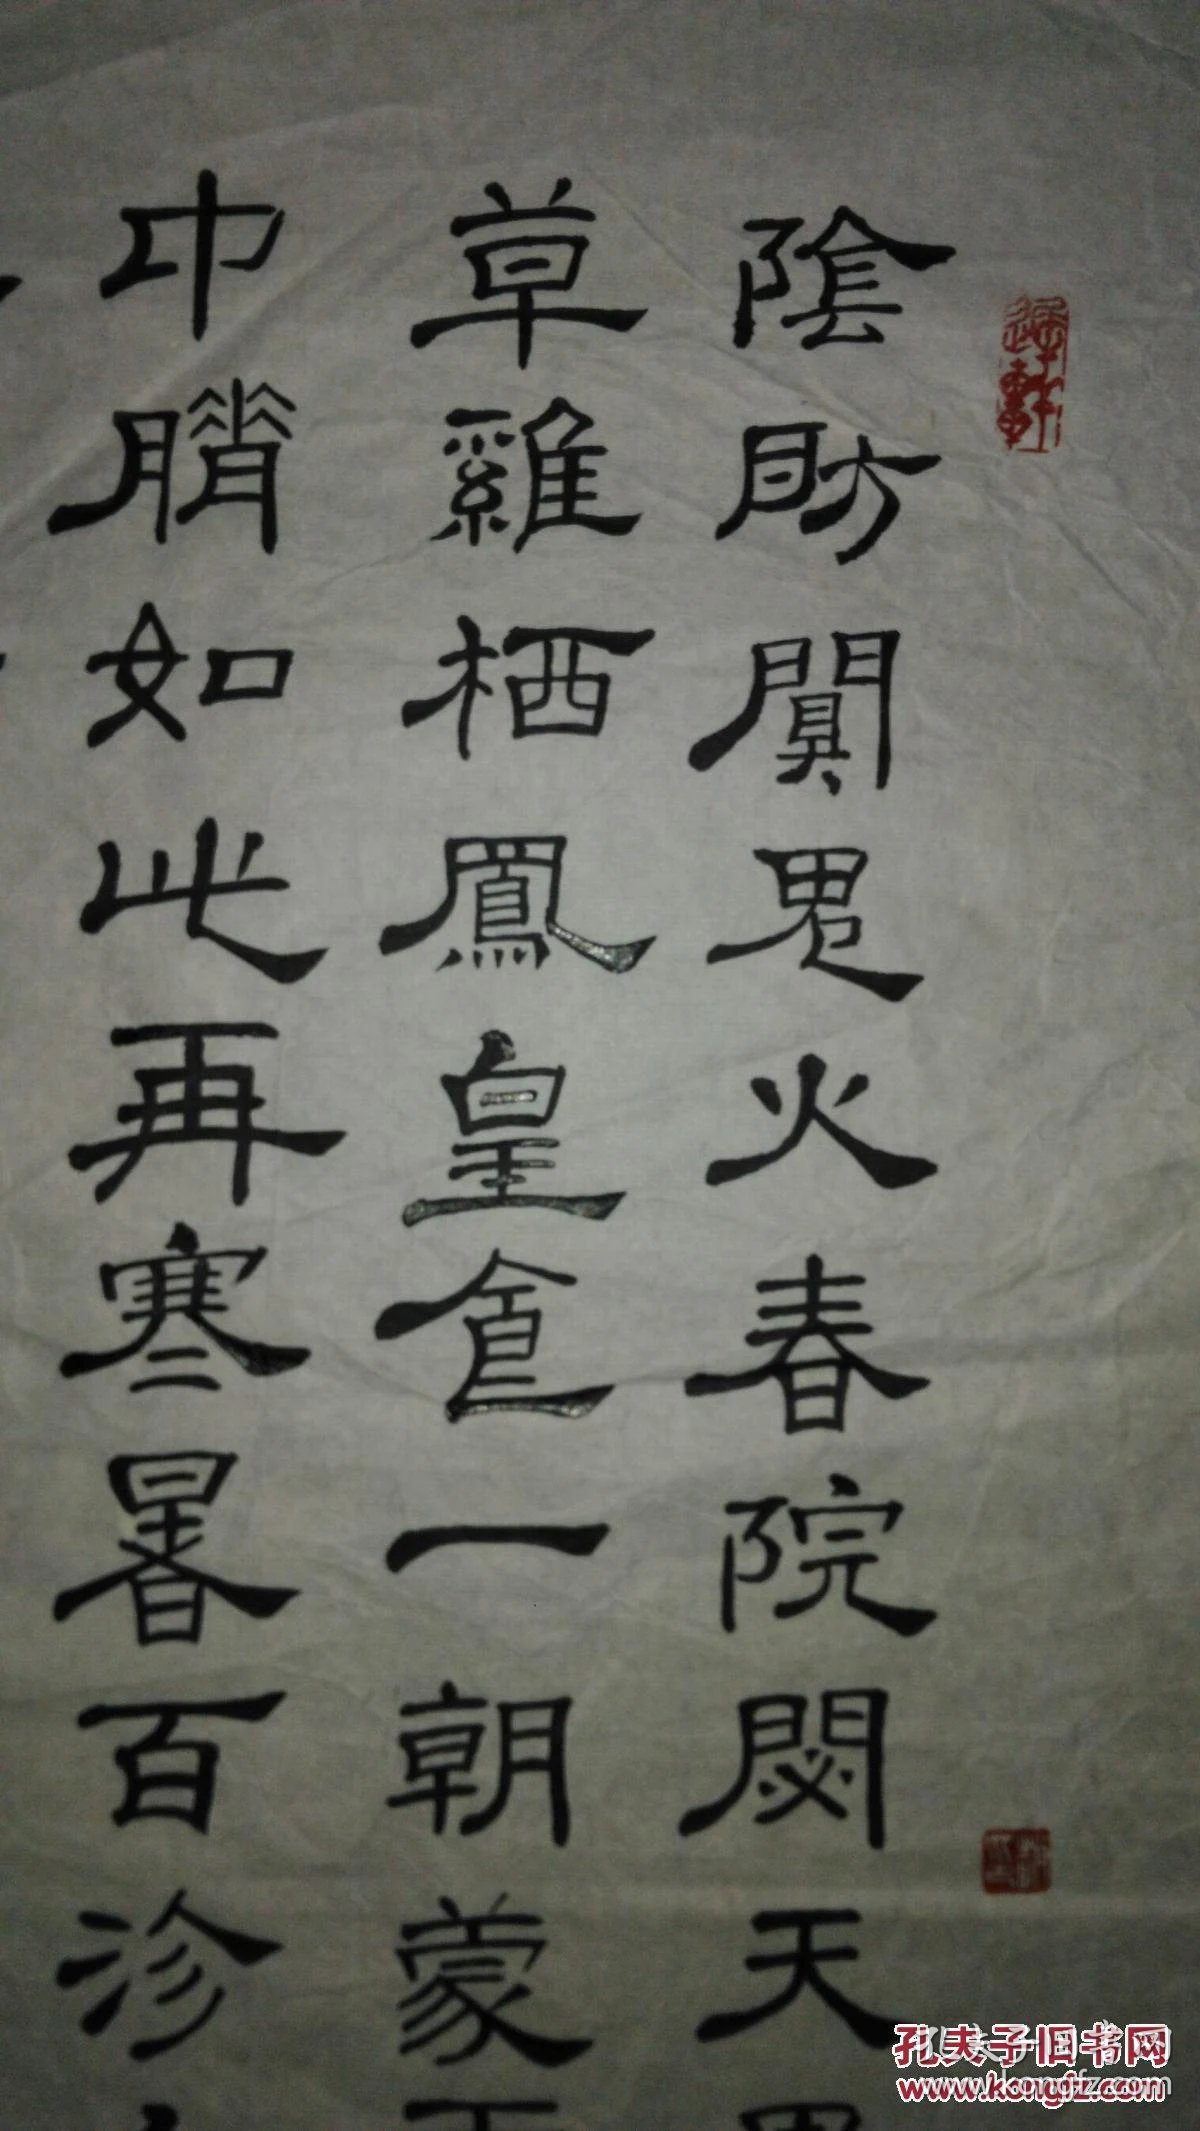 陰房闃鬼火春院閟天黑
草雞栖鳳皇食一朝蒙
巾瘠如此再寒暑百沴
孔夫子旧书网
www.kongfz.com